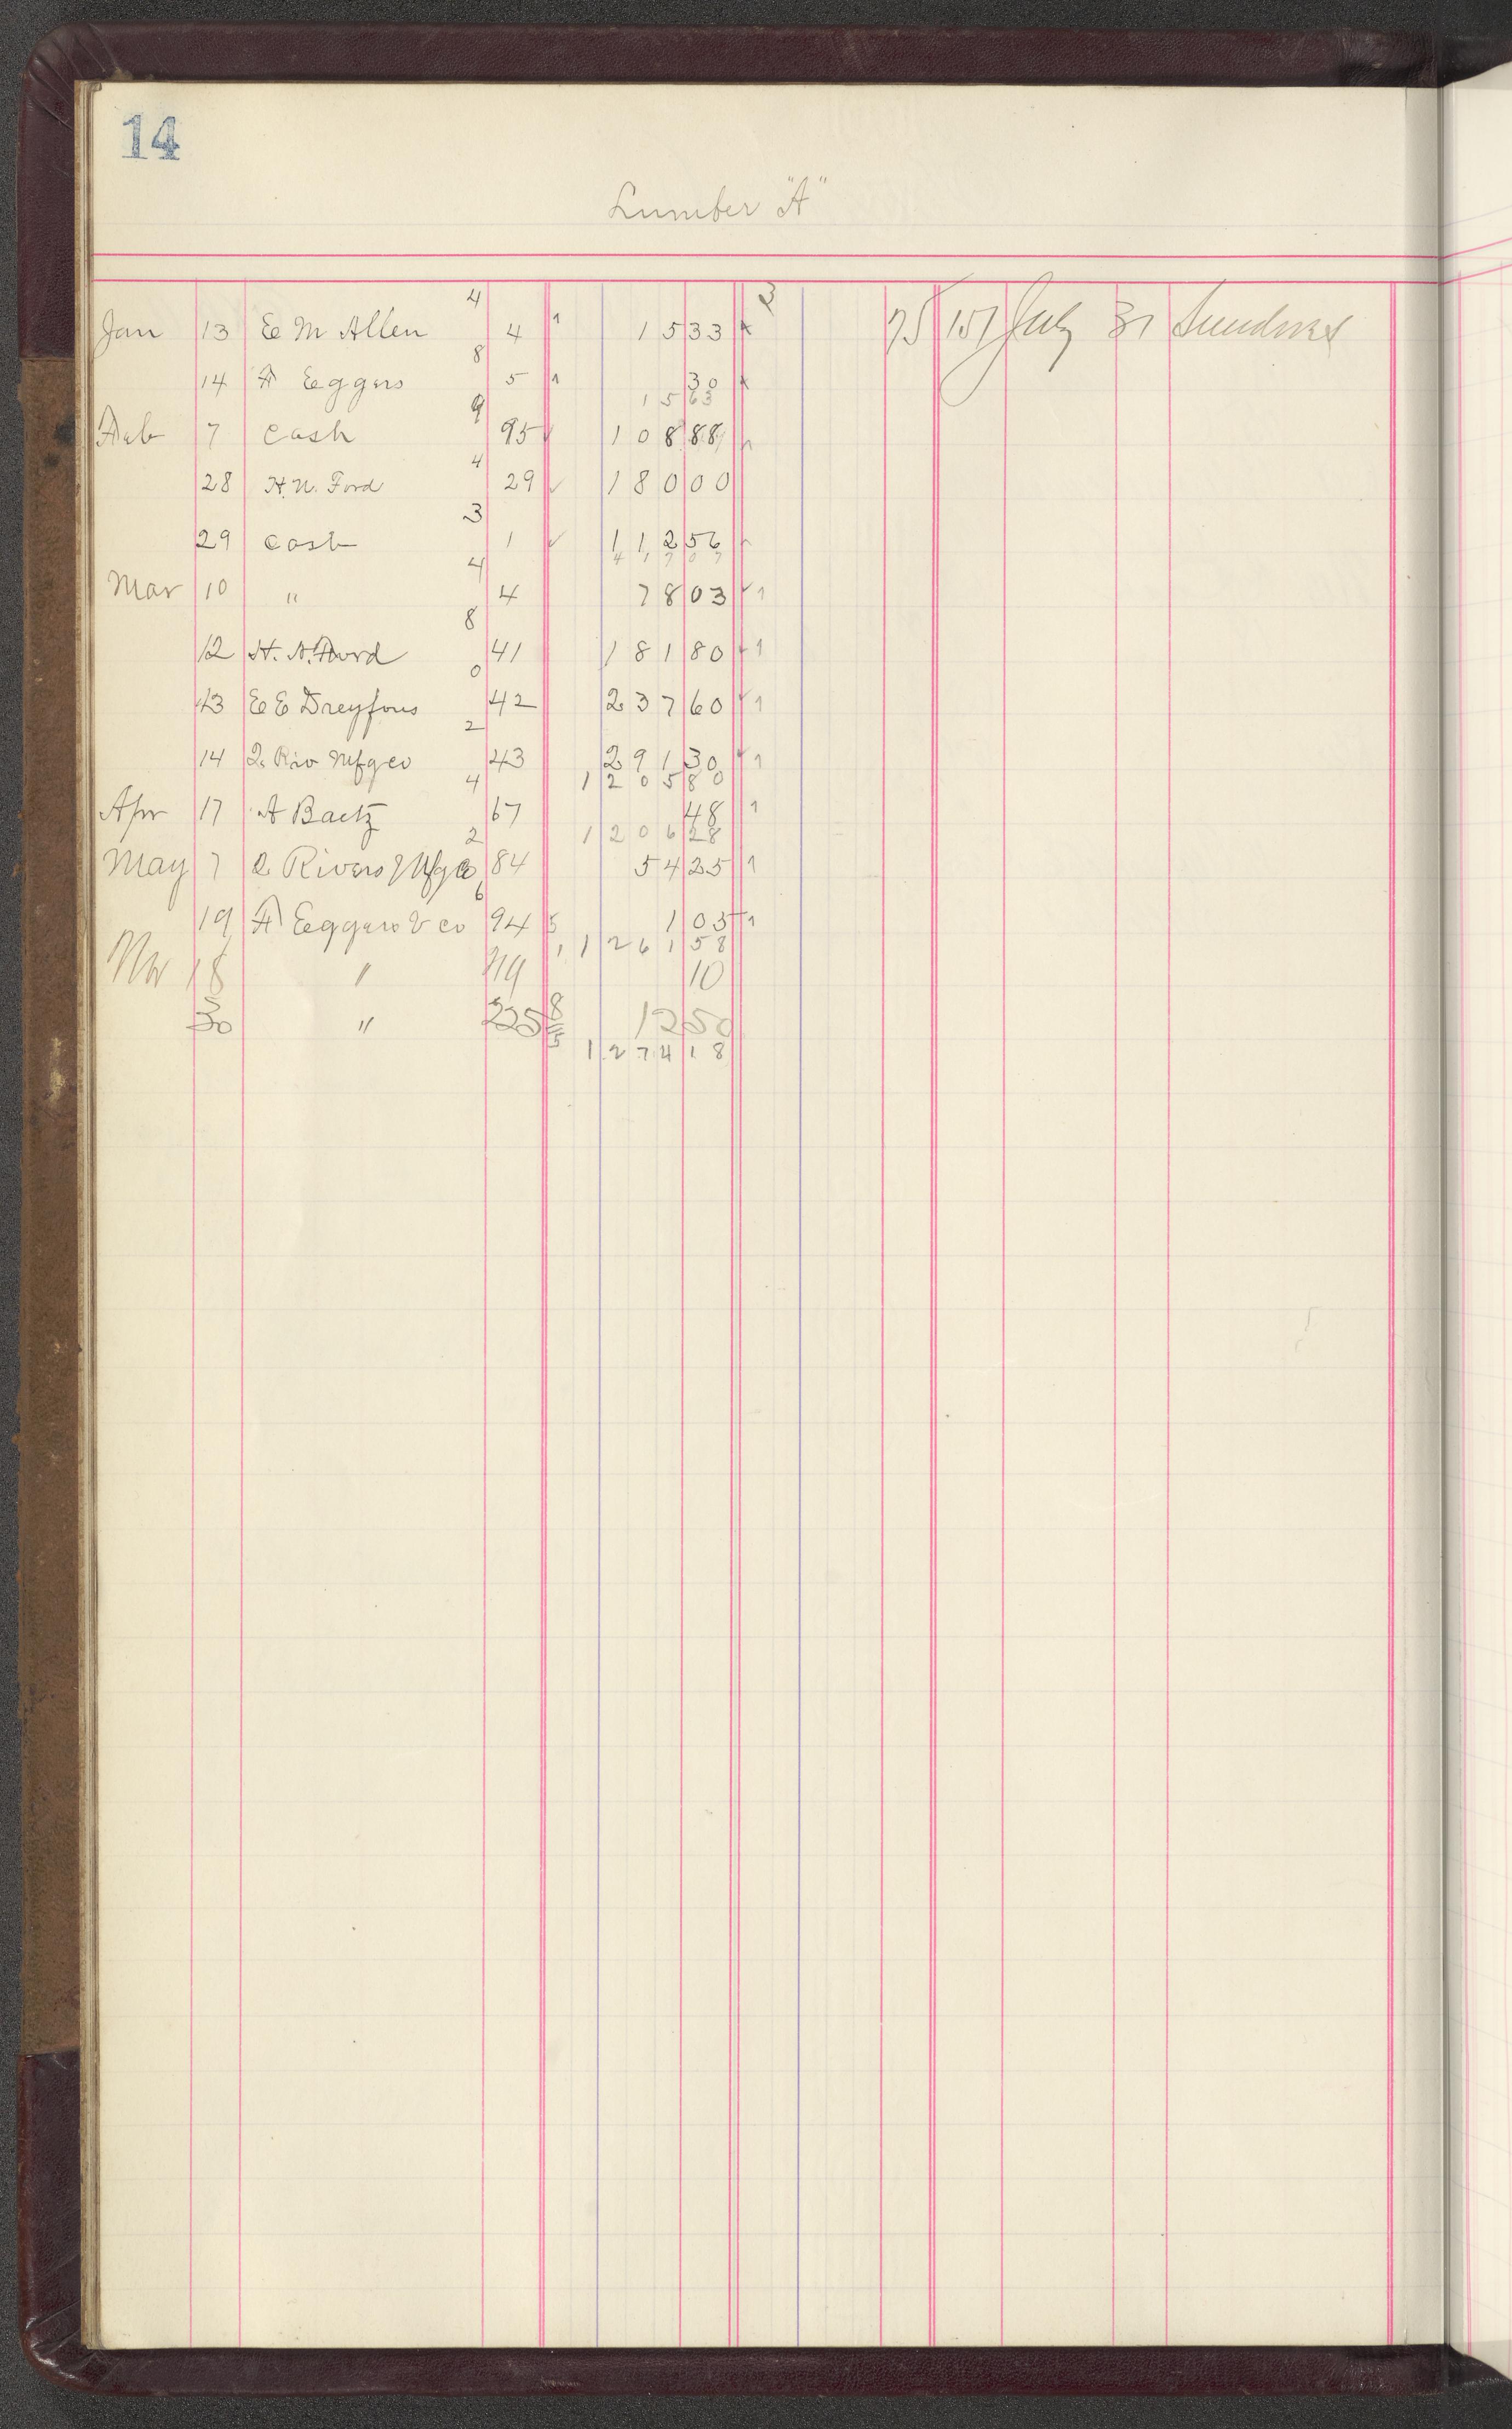 14
Lumber "A"
4 3
Jan 13 E M Allen 4 15 33 75 151 July 31 Sundries
8
14 F Eggers 5 30
15 63
9
Feb 7 Cash 95 108 88
4
28 H. N. Ford 29 180 00
3
29 Cash 1 112 56
417 07
4
Mar 10 " 4 78 03
8
12 H. N. Ford 41 181 80
0
13 E E Dreyfous 42 237 60
2
14 2. Riv Mfg co 43 291 30
4 1205 80
Apr 17 A Baetz 67 48
2 1206 28
May 7 2 Rivers Mfg Co 84 54 25
6
19 F Eggers & co 94 5 1 05
1261 58
Nov 18 " 219 10
30 " 225 8 12 50
5 1274 18